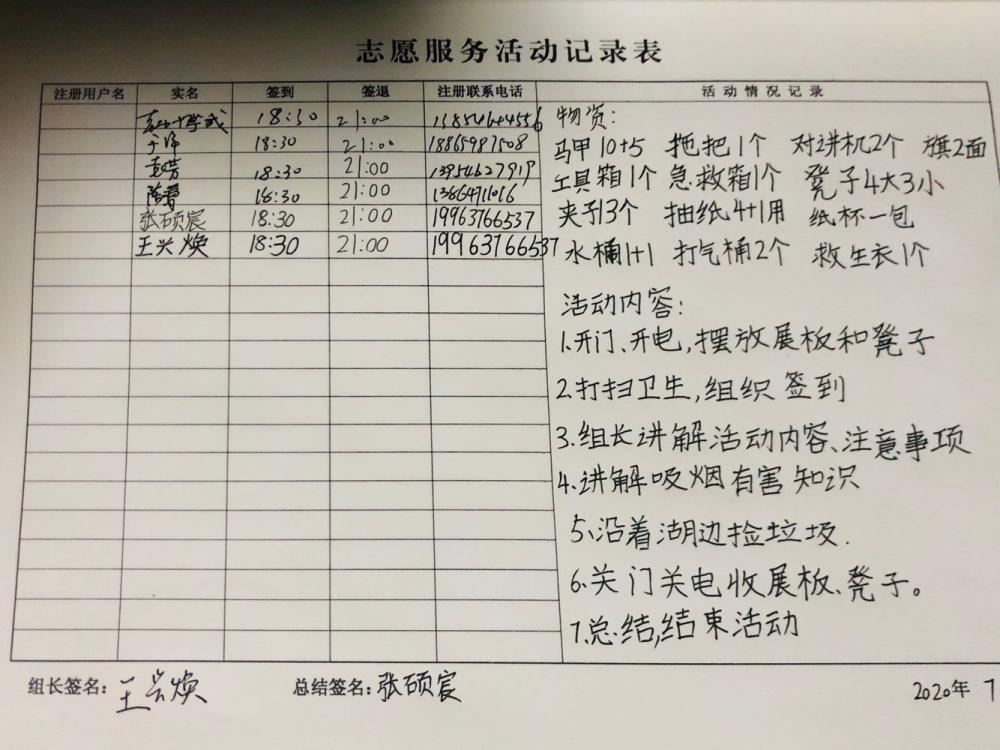 志愿服务活动记录表
注册用户名 实名 签到 签退 注册联系电话 活动情况记录
18:30 21:00
18:30 21:00 18865987508
18:30 21:00 13954627919
18:30 21:00
张硕宸 18:30 21:00 19963766537
王兴焕 18:30 21:00 19963766537
物资:
马甲10+5 拖把1个 对讲机2个 旗2面
工具箱1个 急救箱1个 凳子4大3小
夹子3个 抽纸4+1用 纸杯一包
水桶1+1 打气桶2个 救生衣1个
活动内容:
1.开门、开电,摆放展板和凳子
2.打扫卫生,组织签到
3.组长讲解活动内容、注意事项
4.讲解吸烟有害知识
5.沿着湖边捡垃圾.
6.关门关电收展板、凳子。
7.总结,结束活动
组长签名:王兴焕 总结签名:张硕宸 2020年 7